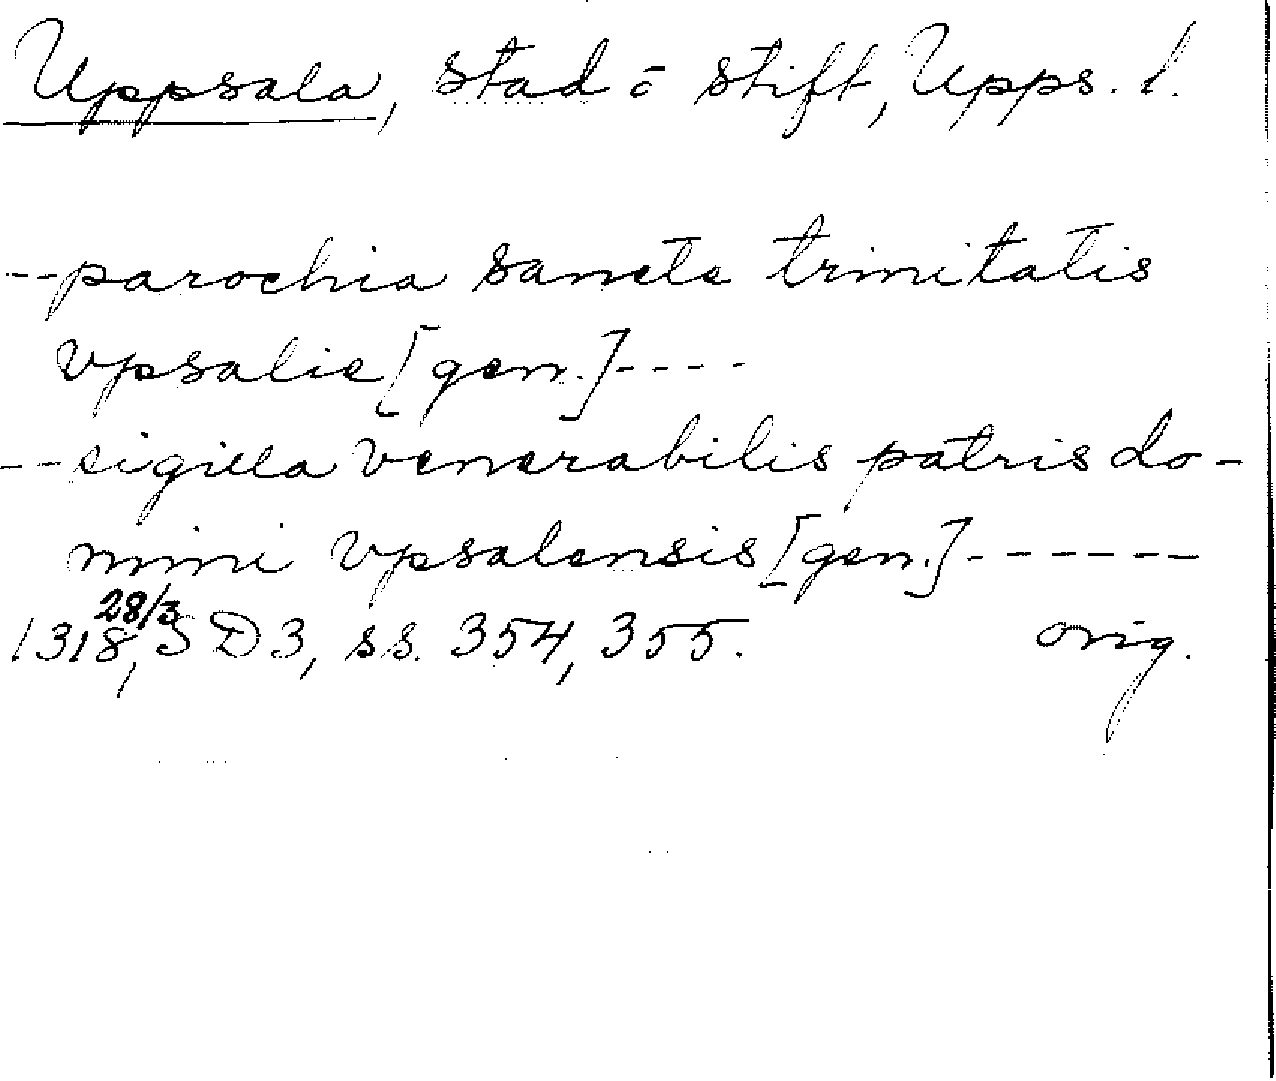 Uppsala, stad o stift, Upps. l.
--parochia sancte trinitatis
vpsalie [gen.]----
--sigilla venerabilis patris do-
mini vpsalensis [gen.]------
28/3
1318, SD3, ss. 354, 355. orig.